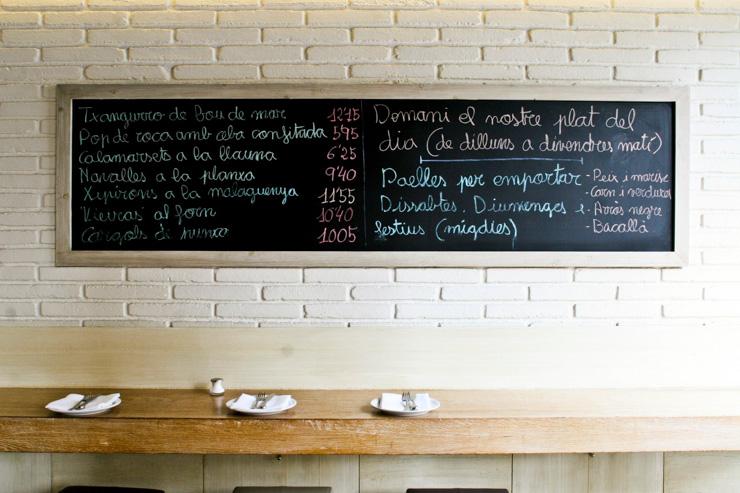 Txangurro de Bou de mar 12'75
Pop de roca amb ceba confitada 5'95
Calamarsets a la llauna 6'25
Navalles a la planxa 9'40
Xipirons a la malaguenya 11'55
Vieiras al forn 10'40
Cargols di punxo 10'05
Demani el nostre plat del
dia (de dilluns a divendres matí)
Paelles per emportar
Dissabtes, Diumenges i
festius (migdies)
- Peix i marisc
- Carn i verdures
- Arròs negre
- Bacallà